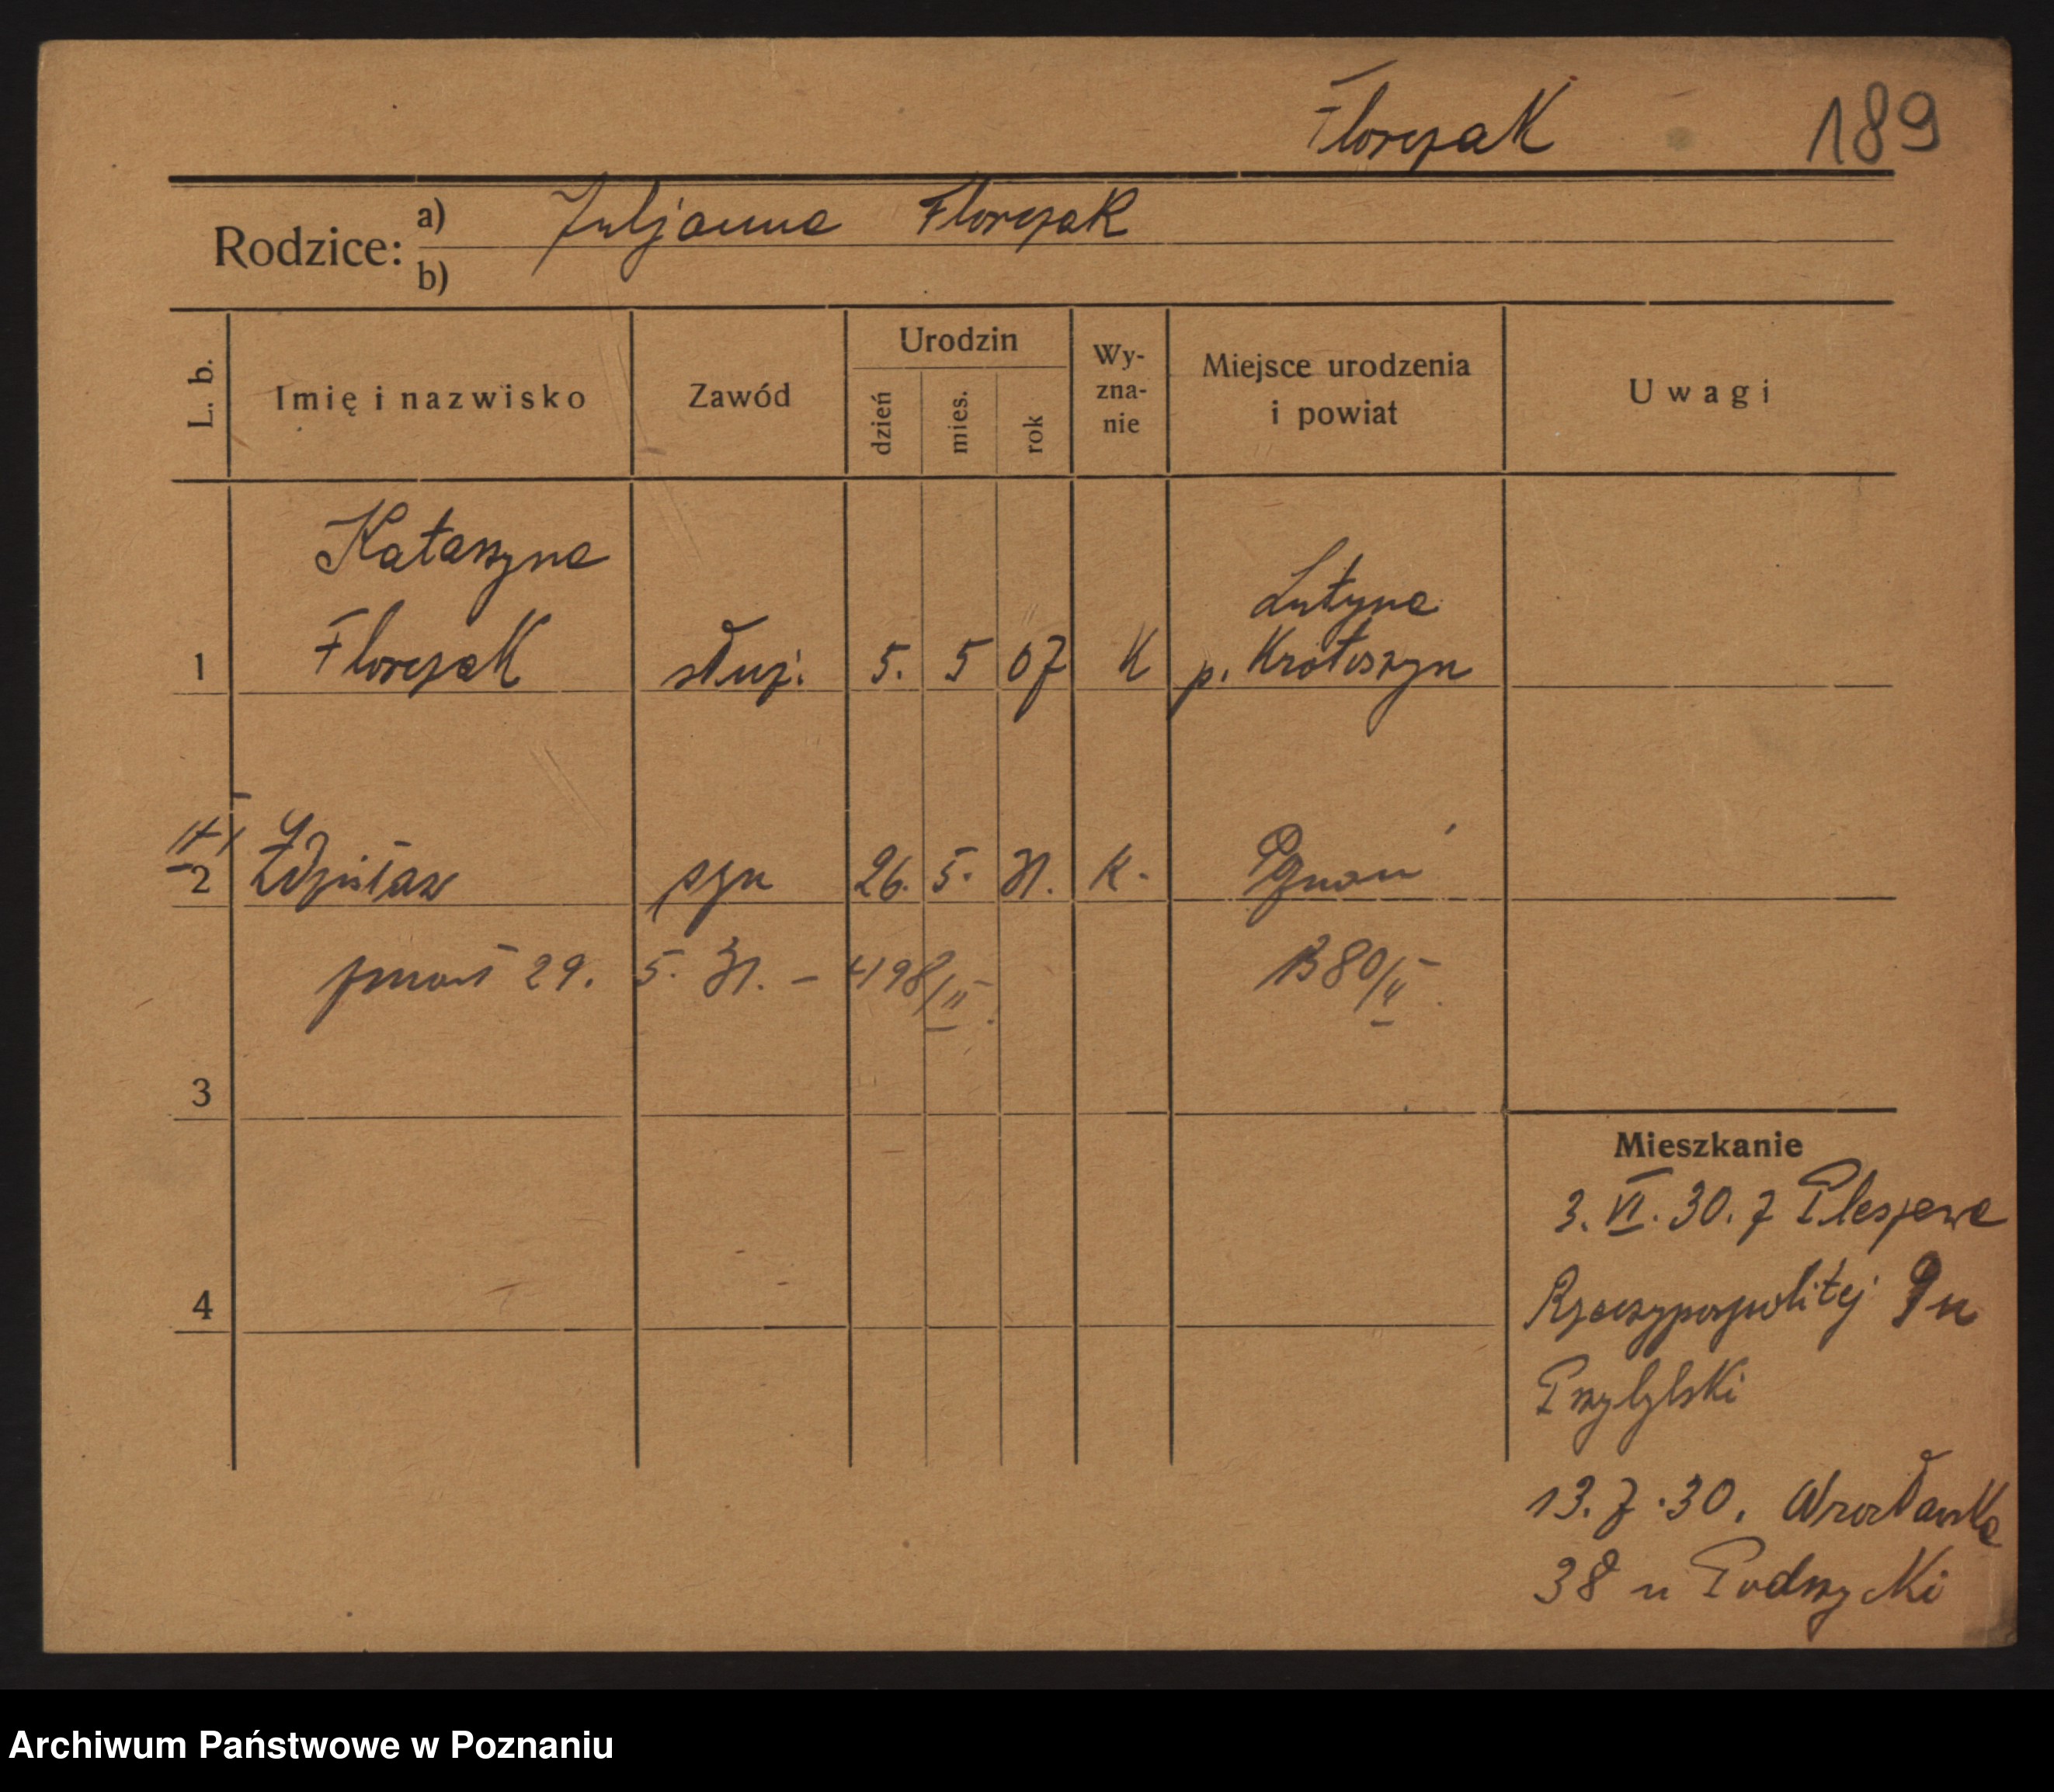 Florczak 189
Rodzice: a) Juljanna Florczak
b)
L. b. Imię i nazwisko Zawód Urodzin dzień mies. rok Wy-zna-nie Miejsce urodzenia i powiat Uwagi
Katarzyna
Lutynia
1 Florczak służ. 5. 5 07 K p. Krotoszyn
2 Zdzisław syn 26. 5. 31. K. Poznań
zmarł 29. 5. 31. – 498/II. 1380/II.
3
Mieszkanie
3. VI. 30. z Pleszewa
4
Rzeczypospolitej
13. 7. 30. Wrocławska
38 u
Archiwum Państwowe w Poznaniu